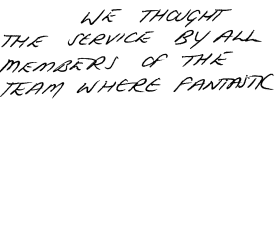 WE THOUGHT
THE SERVICE BY ALL
MEMBERS OF THE
TEAM WHERE FANTASTIC